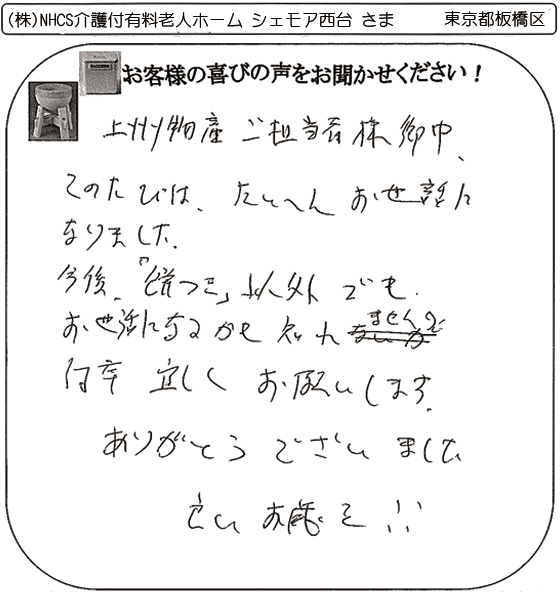 (株)NHCS介護付有料老人ホーム シェモア西台 さま　東京都板橋区
お客様の喜びの声をお聞かせください！
上州物産 ご担当者様 御中、
このたびは、たいへん お世話に
なりました。
今後、「餅つき」以外 でも、
お世話になるかも 知れ ませんので
何卒 宜しく お願いします。
ありがとう ございました
良い お歳を !!